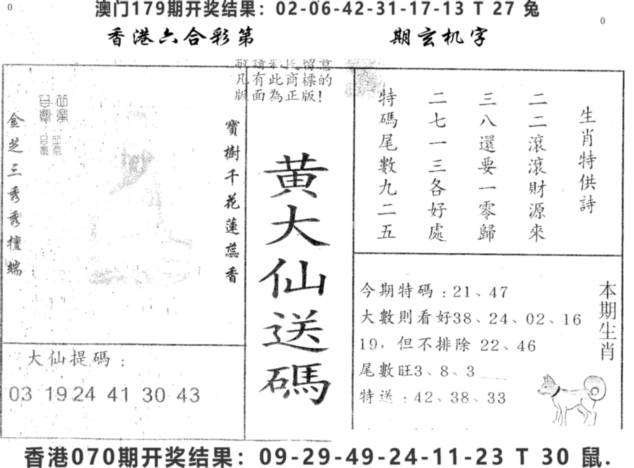 澳门179期开奖结果：02-06-42-31-17-13 T 27 兔
0
0
香港六合彩第 期玄机字
敬請 長留意
凡有此商標的
版面為正版！
金芝三秀秀檀端
寶樹千花蓮蕊香
黄大仙送碼
大仙提碼：
03 19 24 41 30 43
生肖特供詩
二二滾滾財源來
三八還要一零歸
二七一三各好處
特碼尾數九二五
今期特碼：21、47
大數則看好38、24、02、16
19，但不排除 22、46
尾數旺3、8、3
特送：42、38、33
本期生肖
香港070期开奖结果：09-29-49-24-11-23 T 30 鼠.